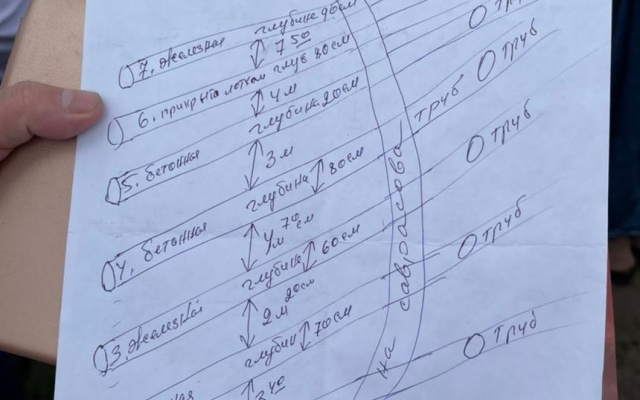 7. железная глубина 90см
7 50
6. прикрыта лотком глуб 80см
4м
5. бетонная глубина 20см
3м
4. бетонная глубина 80см
4м 70см
3. железная глубина 60см
2м 20см
ная глубин 70см
3 40
на
труб
труб
труб
труб
труб
труб